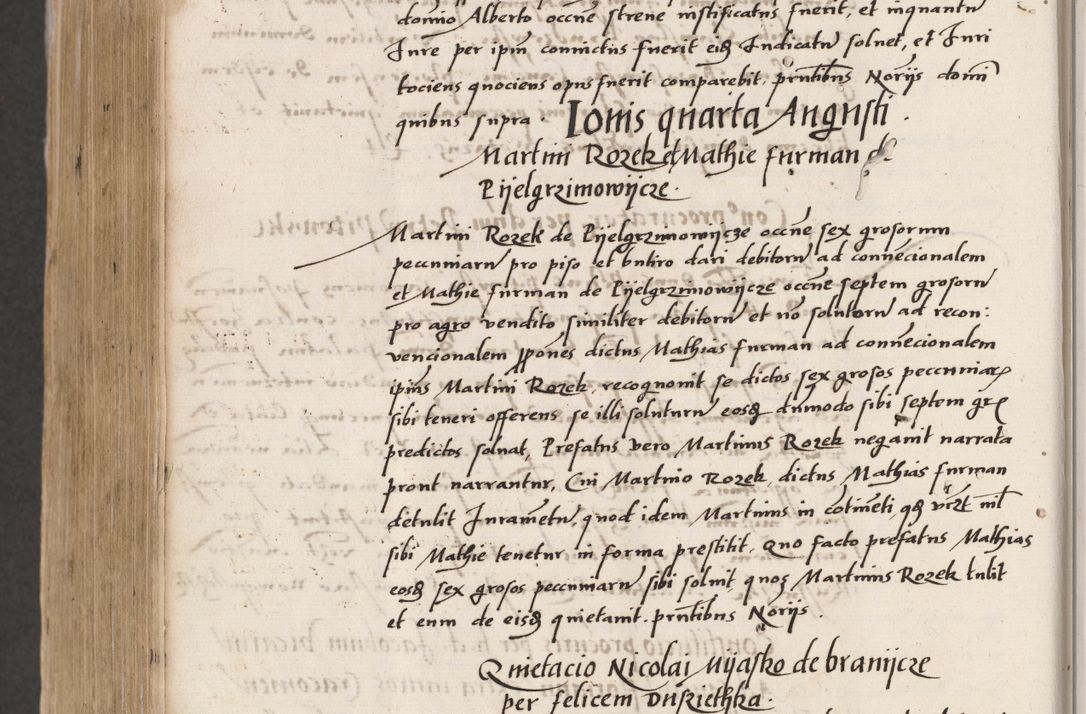 domino Alberto occne strene iustificatus fuerit, et inquantu
Jure per ipm conuictus fuerit eisdē Indicatu soluet, et Juri
tociens quociens opus fuerit comparebit, pntibus Norijs domi
quibus supra. Iouis quarta Augusti.
Martini Rozek et Mathie furman de
Pijelgrzimowijcze.
Martini Rozek de Pijelgrzimowijcze occne sex grosorum
pecuniaru pro piso et butiro dari debitoru ad conuecionalem
et Mathie furman de Pijelgrzimowijcze occne septem grosoru
pro agro vendito similiter debitoru et no solutoru ad recon:
vencionalem ppones dictus Mathias furman ad conuecionalem
ipius Martini Rozek, recognouit se dictos sex grosos pecuniarz
sibi teneri offerens se illi soluturu eosdē dumodo sibi septem gr
predictos soluat, Prefatus vero Martinus Rozek negauit narrata
prout narrantur, Cui Martino Rozek, dictus Mathias furman
detulit Jurametu, quod idem Martinus in cotineti qd nil
sibi Mathie tenetur in forma prestitit, Quo facto prefatus Mathias
eosdē sex grosos pecuniaru sibi soluit, quos Martinus Rozek tulit
et eum de eisdē quietauit. pntibus Norijs.
Quietacio Nicolai Mijasko de branijcze
per felicem Duskiethka.